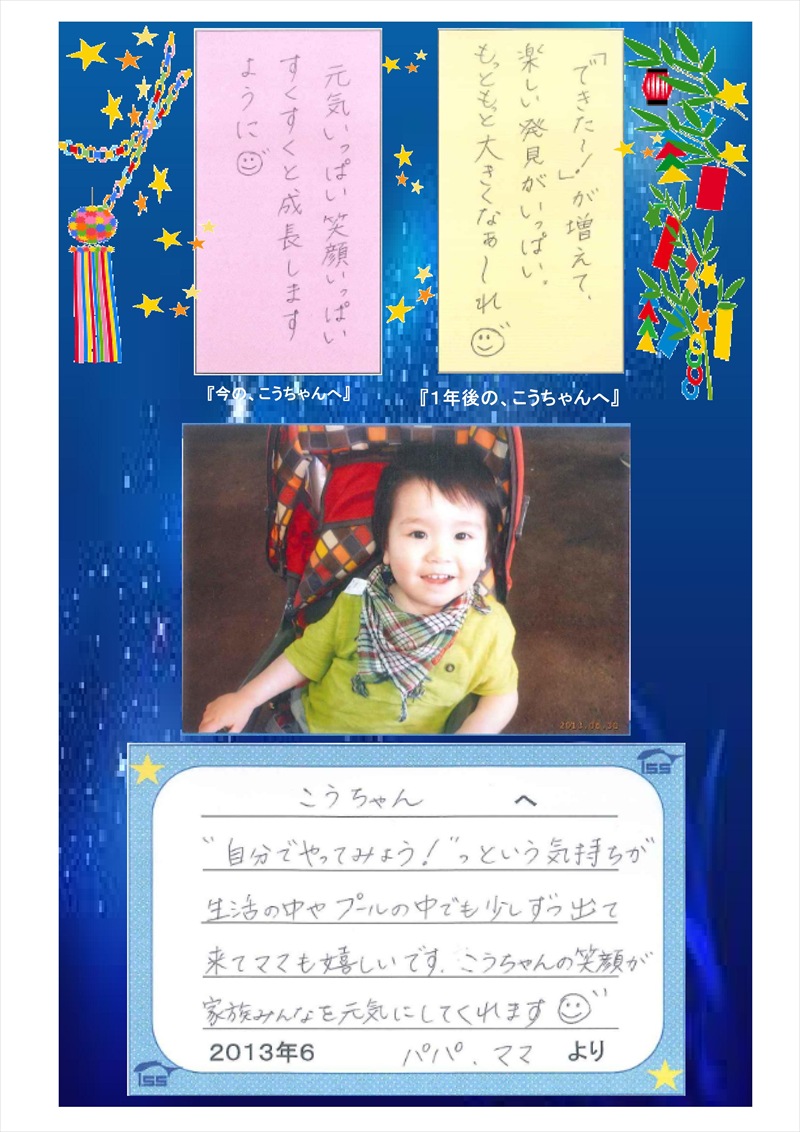 元気いっぱい笑顔いっぱい
すくすくと成長します
ように
「できた〜!」が増えて、
楽しい発見がいっぱい。
もっともっと大きくなぁ〜れ
『今の、こうちゃんへ』
『1年後の、こうちゃんへ』
2013.06.30
ISS
こうちゃん へ
"自分でやってみよう!"っという気持ちが
生活の中やプールの中でも少しずつ出て
来てママも嬉しいです。こうちゃんの笑顔が
家族みんなを元気にしてくれます
2013年6 パパ、ママ より
ISS